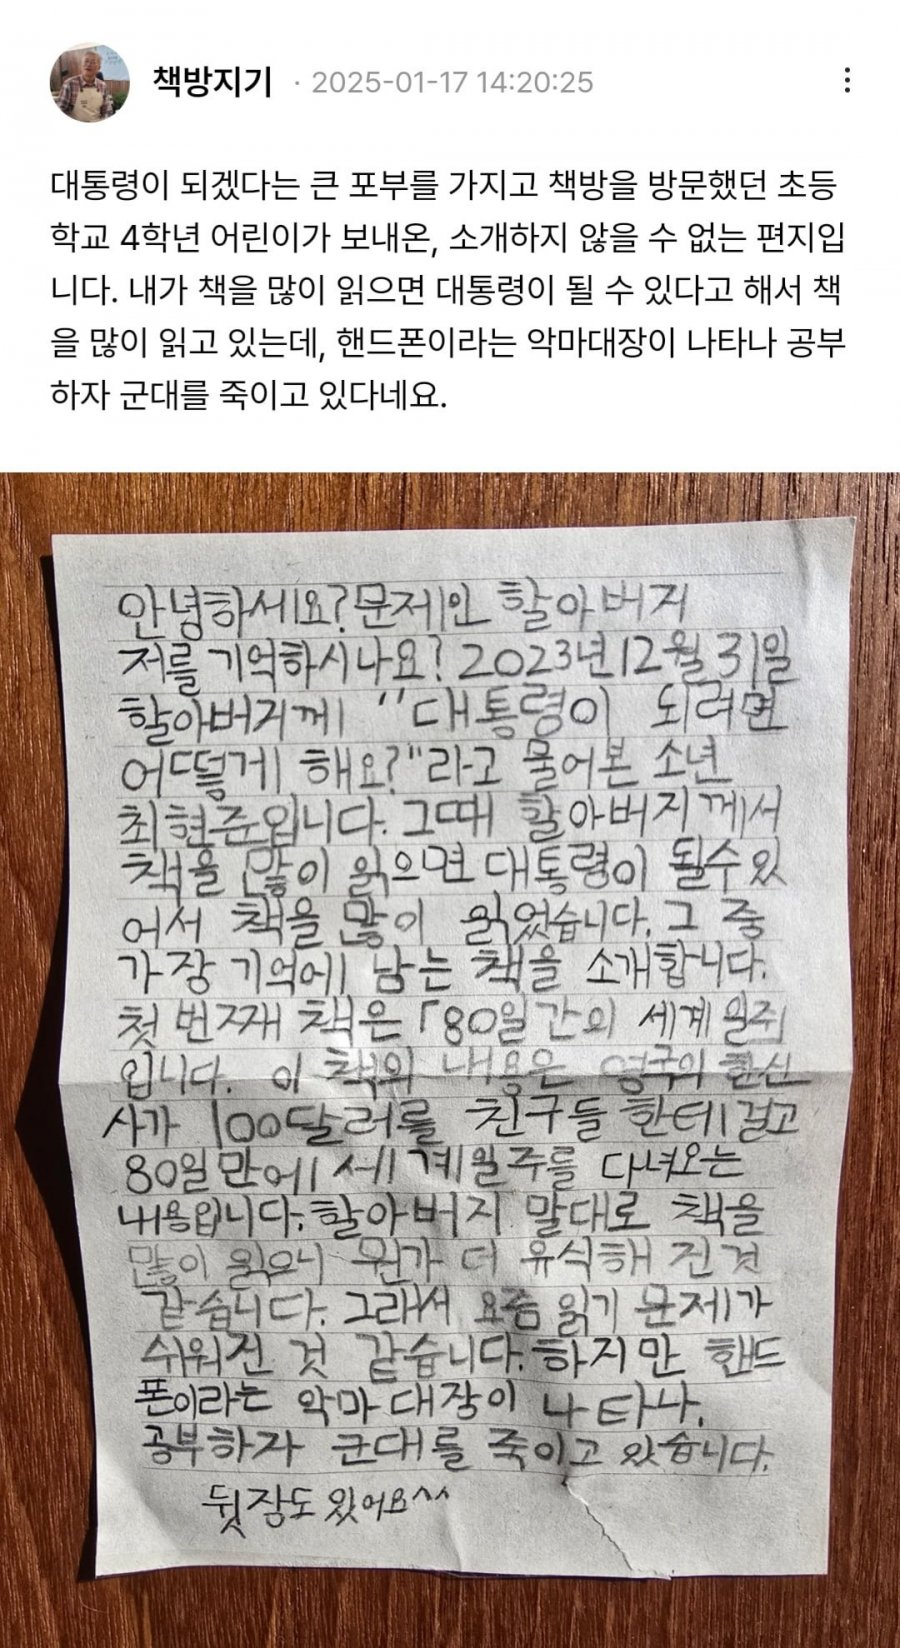 책방지기 · 2025-01-17 14:20:25
대통령이 되겠다는 큰 포부를 가지고 책방을 방문했던 초등
학교 4학년 어린이가 보내온, 소개하지 않을 수 없는 편지입
니다. 내가 책을 많이 읽으면 대통령이 될 수 있다고 해서 책
을 많이 읽고 있는데, 핸드폰이라는 악마대장이 나타나 공부
하자 군대를 죽이고 있다네요.
안녕하세요? 문제인 할아버지
저를 기억하시나요? 2023년 12월 31일
할아버지께 "대통령이 되려면
어떻게 해요?"라고 물어본 소년
최현준입니다. 그때 할아버지께서
책을 많이 읽으면 대통령이 될수있
어서 책을 많이 읽었습니다. 그 중
가장 기억에 남는 책을 소개합니다.
첫 번째 책은 「80일간의 세계 일주」
입니다. 이 책의 내용은 영국의 한신
사가 100달러를 친구들 한테 걸고
80일만에 세계일주를 다녀오는
내용입니다. 할아버지 말대로 책을
많이 읽으니 뭔가 더 유식해 진 것
같습니다. 그래서 요즘 읽기 문제가
쉬워진 것 같습니다. 하지만 핸드
폰이라는 악마 대장이 나타나,
공부하자 군대를 죽이고 있습니다.
뒷장도 있어요^^